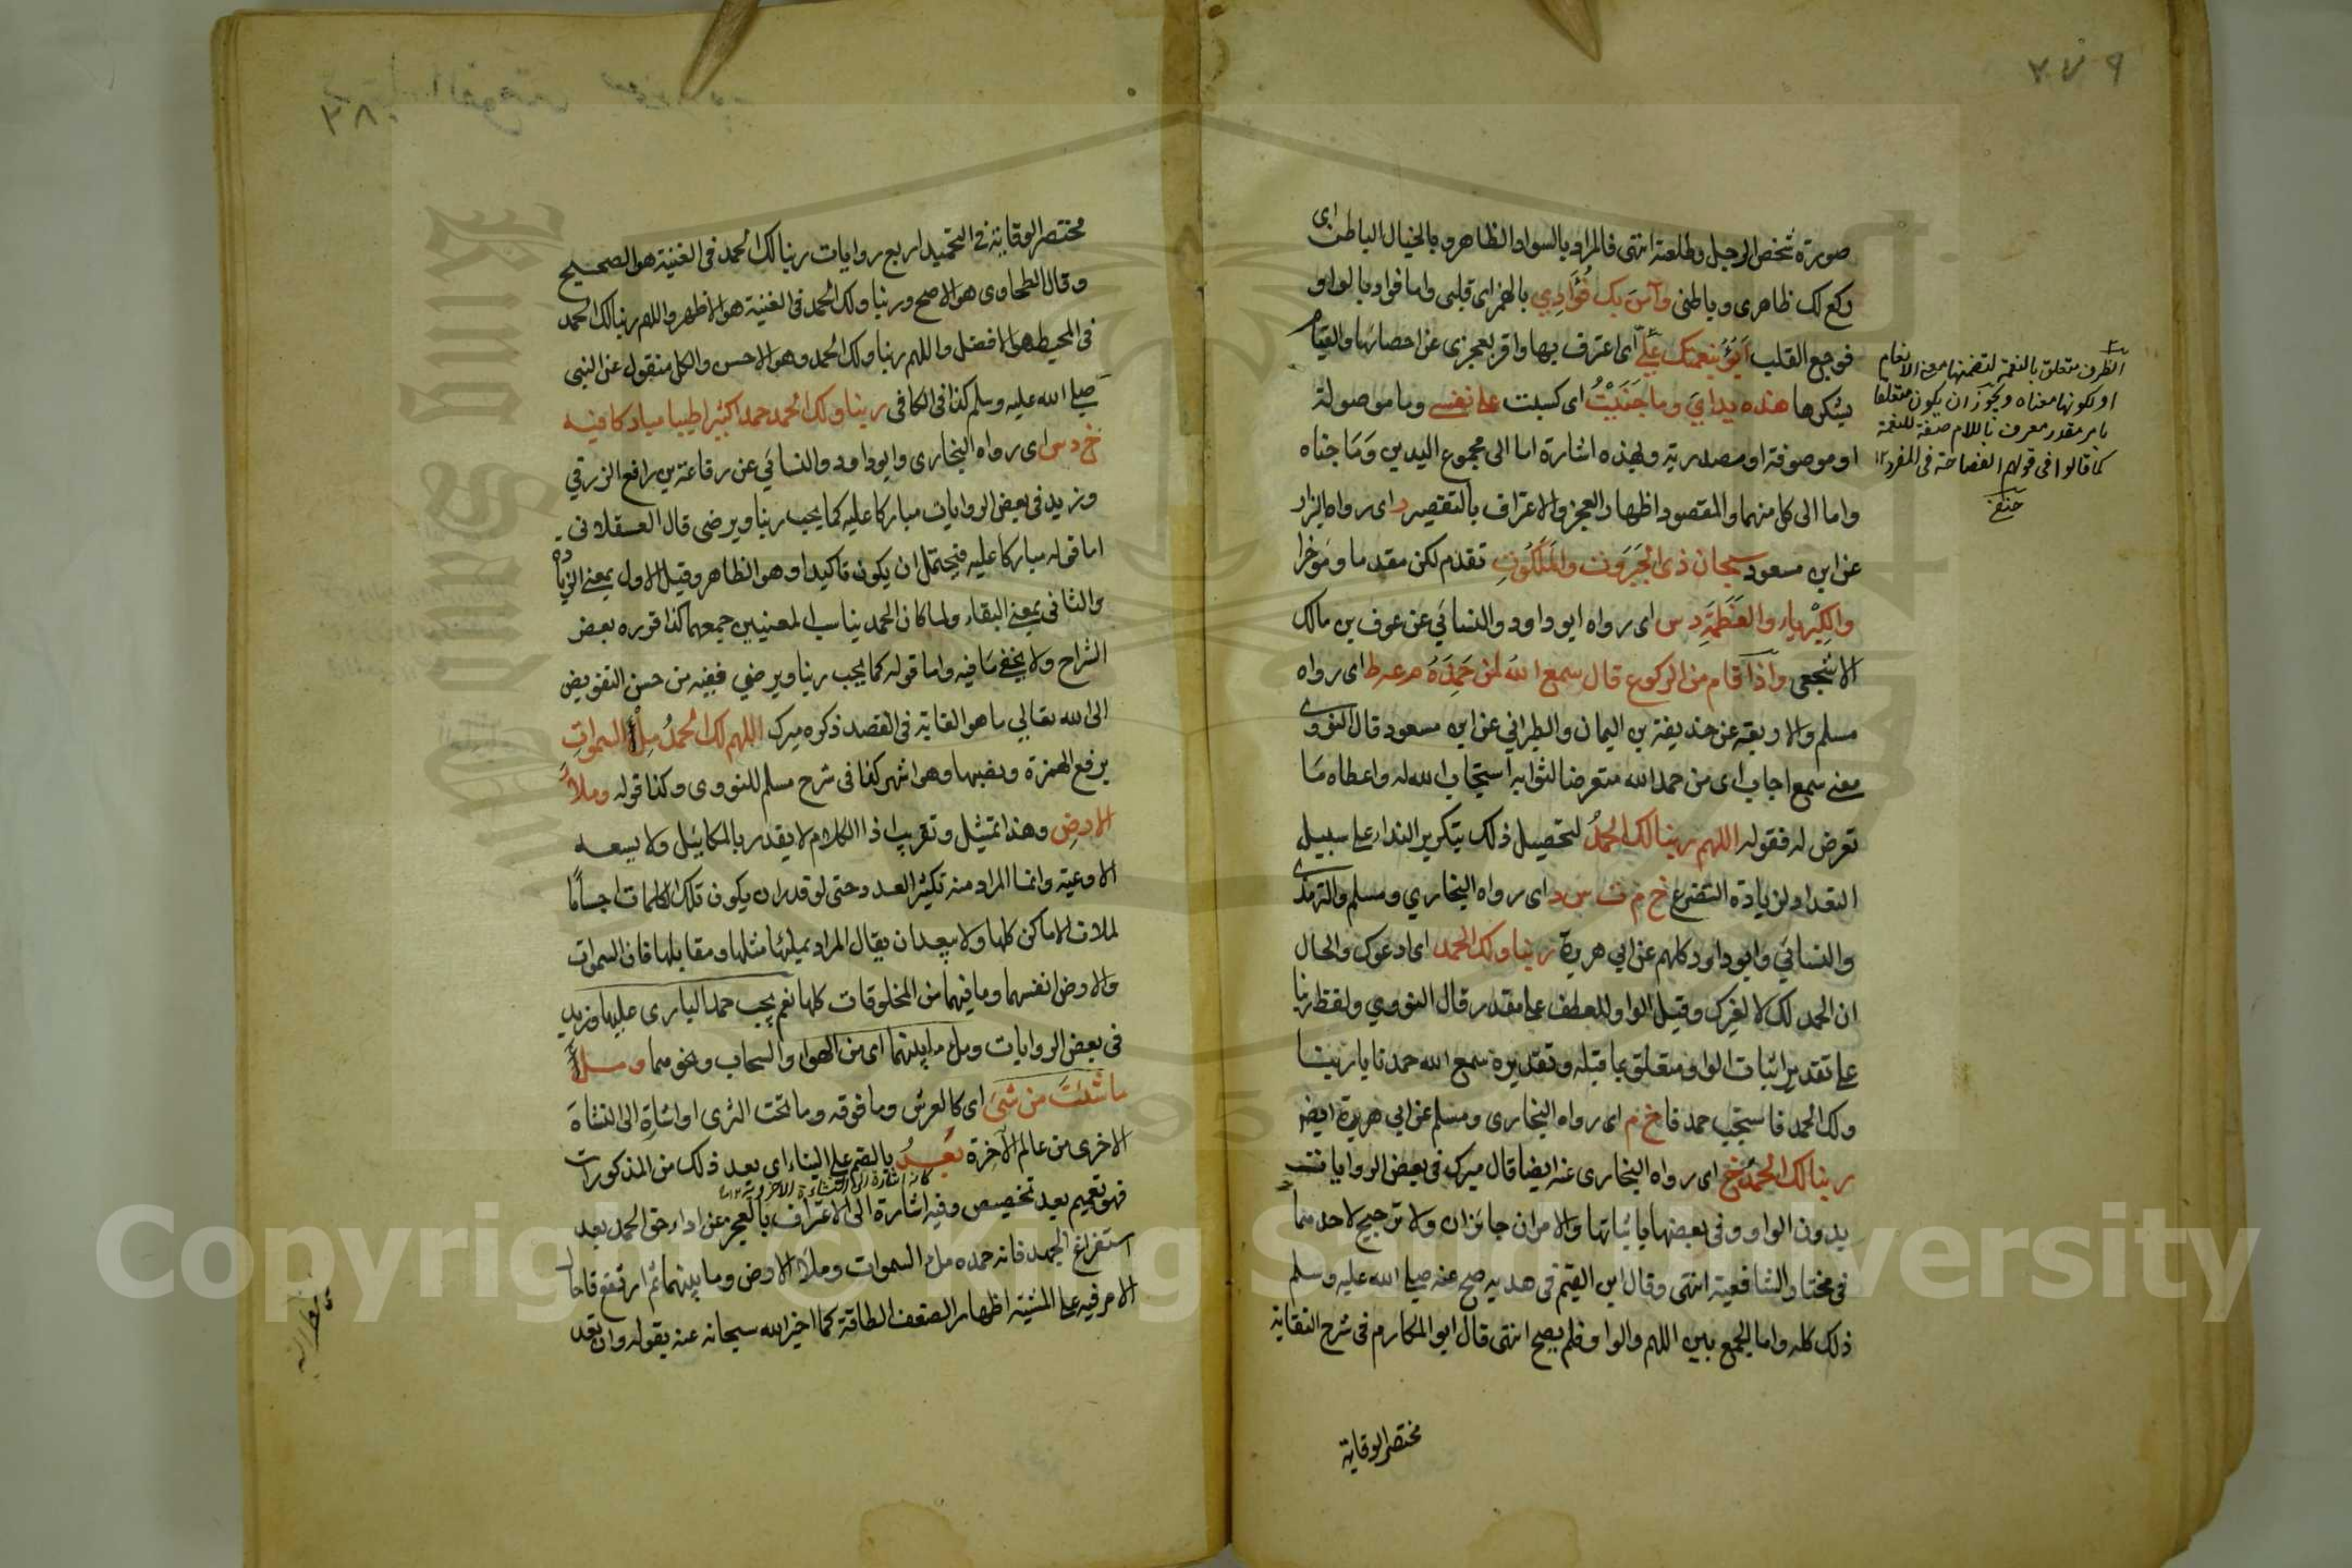 ٢٧٩
صورة شخص الرجل وطلعته انتهى فالمراد بالسواد الظاهر وبالخيال الباطن اى
ركع لك ظاهرى وباطنى وآمن بك فُؤَادِي بالهمز اى قلبى واما فواد بالواو
فوجع القلب أَبُوْءُ بنعمتك عَلَيَّ اى اعترف بها واقر بعجزى عن احصائها والقيام
بشكرها هذه يداىَ وما جَنَيْتُ اى كسبت على نفسى وما موصولة
او موصوفة او مصدرية وهذه اشارة اما الى مجموع اليدين وَمَا جناه
واما الى كل منهما والمقصود اظهار العجز والاعتراف بالتقصير ر اى رواه البزار
عن ابن مسعود سبحان ذى الجَبَرُوْت والمَلَكُوتِ تقدم لكن مقدما ومؤخرا
والكِبْرِيَاءِ والعَظَمَةِ د س اى رواه ابو داود والنسائي عن عوف بن مالك
الاشجعى واذا قام من الركوع قال سمع اللّٰهُ لمن حَمِدَهُ م عه ط اى رواه
مسلم والاربعة عن حذيفة بن اليمان والطبرانى عن ابن مسعود قال النووى
معنى سمع اجاب اى من حمد الله متعرضا لثوابه استجاب الله له واعطاه مَا
تعرض له فقوله اللهم ربنا لك الحمدُ لتحصيل ذلك بتكرير النداء على سبيل
التعداد لزيادة التضرع خ م ت س د اى رواه البخاري ومسلم والترمذى
والنسائي وابو داود كلهم عن ابى هريرة ربنا ولك الحمد اى ادعوك والحال
ان الحمد لك لا لغيرك وقيل الواو للعطف على مقدر قال النووي ولفظ ربنا
على تقدير اثبات الواو متعلق بما قبله وتقديره سمع الله حمدنا يا ربنا
ولك الحمد فاستجب حمدنا خ م اى رواه البخارى ومسلم عن ابي هريرة ايضا
ربنا لك الحمدُ خ اى رواه البخارى عنه ايضا قال ميرك فى بعض الروايات
بدون الواو وفى بعضها باثباتها والامران جائزان ولا ترجيح لاحدهما
فى مختار الشافعية انتهى وقال ابن القيم فى هديه صح عنه صلى الله عليه وسلم
ذلك كله واما الجمع بين اللهم والواو فلم يصح انتهى قال ابو المكارم فى شرح النقاية
مختصر الوقاية
الظرف متعلق بالنعمة لتضمنها معنى الانعام
او لكونها معناه ويجوز ان يكون متعلقا
بامر مقدر معرف باللام صفة للنعمة
كما قالوا فى قولهم الفصاحة فى المفرد ١٢
حنفى
٢٨٠
مختصر الوقاية فى التحميد اربع روايات ربنا لك الحمد فى الغنية هو الصحيح
وقال الطحاوى هو الاصح وربنا ولك الحمد فى الغنية هو الاظهر واللهم ربنا لك الحمد
فى المحيط هو الافضل واللهم ربنا ولك الحمد وهو الاحسن والكل منقول عن النبى
صلى الله عليه وسلم كذا فى الكافى ربنا ولك الحمد حمدا كثيرا طيبا مباركا فيه
خ د س اى رواه البخارى وابو داود والنسائي عن رفاعة بن رافع الزرقي
وزيد فى بعض الروايات مباركا عليه كما يحب ربنا ويرضى قال العسقلانى
اما قوله مباركا عليه فيحتمل ان يكون تاكيدا وهو الظاهر وقيل الاول بمعنى الزيادة
والثانى بمعنى البقاء ولما كان الحمد يناسب المعنيين جمعهما كذا قرره بعض
الشراح ولا يخفى مَا فيه واما قوله كما يحب ربنا ويرضى ففيه من حسن التفويض
الى الله تعالى ما هو الغاية فى القصد ذكره ميرك اللهم لك الحمدُ مِلْأُ السمواتِ
برفع الهمزة ونصبها وهو اشهر كذا فى شرح مسلم للنووى وكذا قوله وملأَُ
الارضِ وهذا تمثيل وتقريب اذ الكلام لا يقدر بالمكاييل ولا يسعه
الاوعية وانما المراد منه تكثير العدد حتى لو قدر ان يكون تلك الكلمات اجسامًا
لملات الاماكن كلها ولا يبعد ان يقال المراد بملئها مثلها ومقابلها فان السموات
والارض انفسهما وما فيهما من المخلوقات كلها نعم يجب حمد البارى عليها وزيد
فى بعض الروايات وملء ما بينهما اى من الهواء والسحاب ونحوهما وملأُ
ما شئتَ من شىءٍ اى كالعرش وما فوقه وما تحت الثرى او اشارة الى النشاة
الاخرى من عالم الآخرة بَعْدُ بالضم على البناء اى بعد ذلك من المذكورات
فهو تعميم بعد تخصيص وفيه اشارة الى الاعتراف بالعجز عن اداء حق الحمد بعد
استفراغ الجهد فانه حمده ملء السموات وملأ الارض وما بينهما ثم ارتفع فاحال
الامر فيه على المشية اظهار الضعف الطاقة كما اخبر الله سبحانه عنه بقوله وان تعد
Copyright © King Saud University